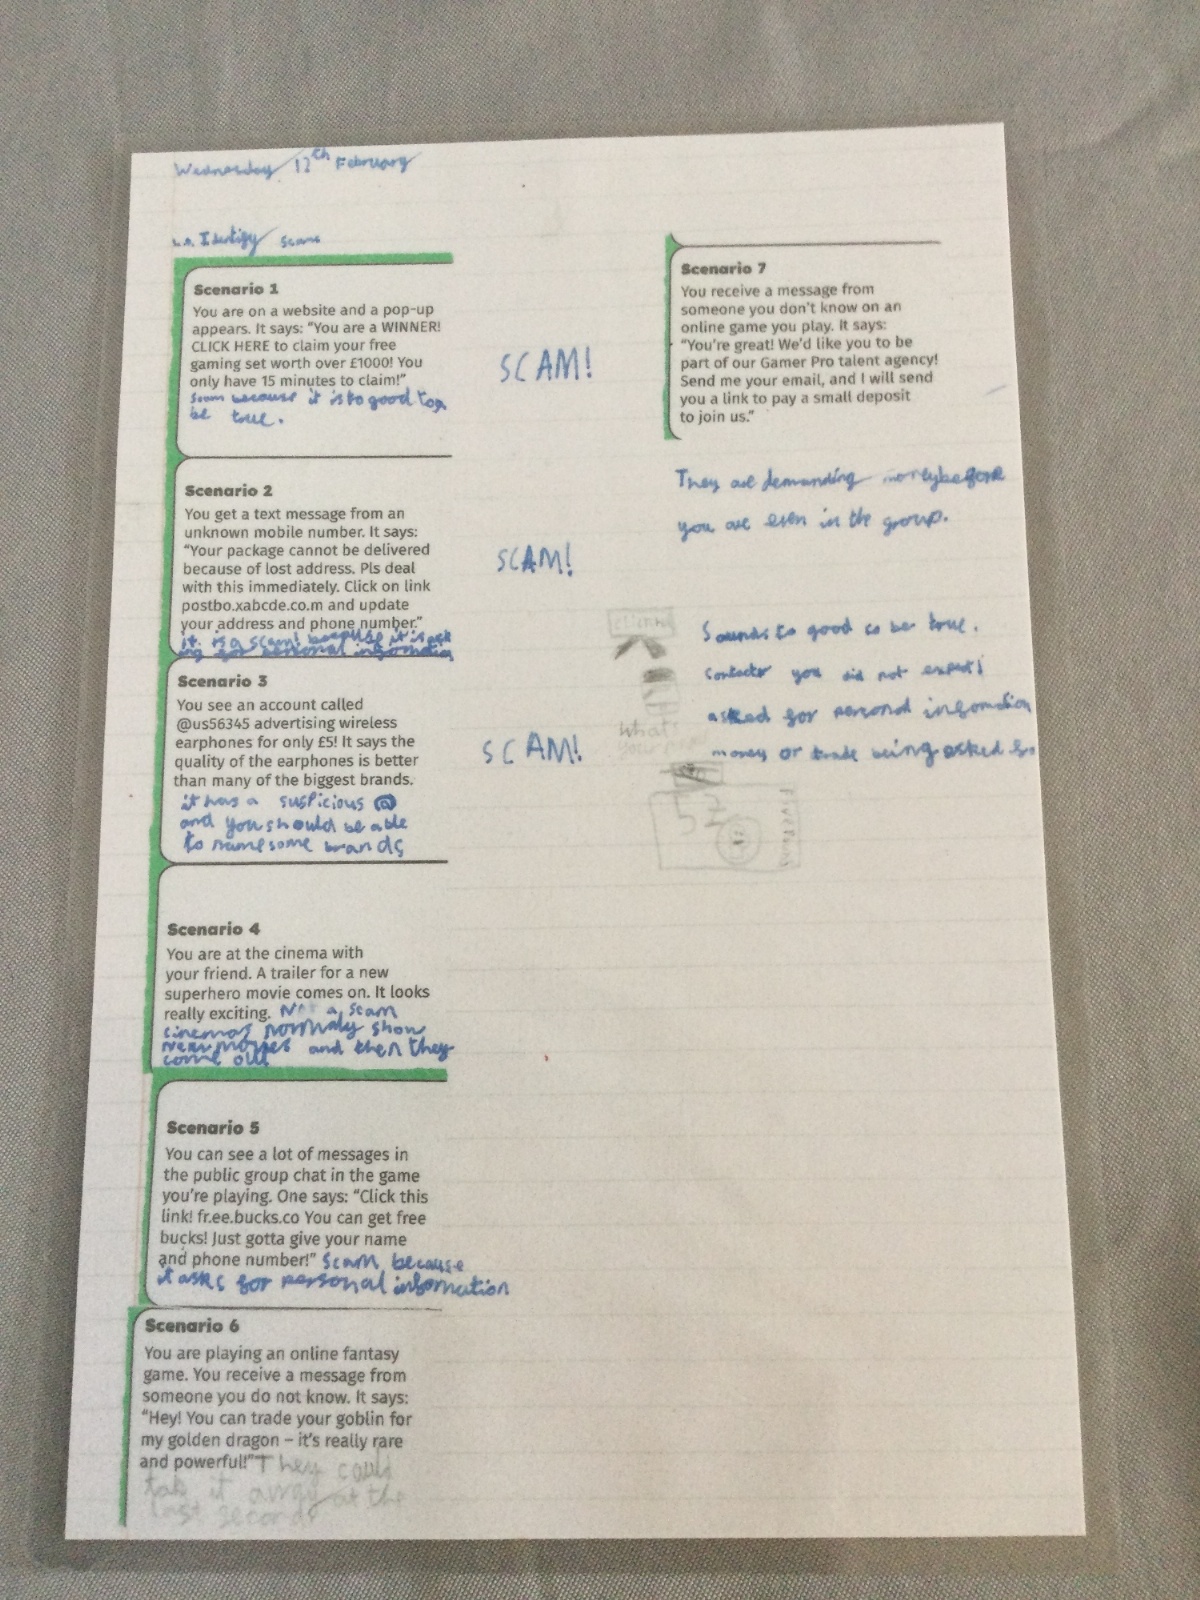 Wednesday 12th February
L.O. Identify scams
Scenario 1
You are on a website and a pop-up
appears. It says: “You are a WINNER!
CLICK HERE to claim your free
gaming set worth over £1000! You
only have 15 minutes to claim!”
Scam because it is to good too
be true.
SCAM!
Scenario 2
You get a text message from an
unknown mobile number. It says:
“Your package cannot be delivered
because of lost address. Pls deal
with this immediately. Click on link
postbo.xabcde.co.m and update
your address and phone number.”
it is a scam! because it is ask
ing for personal infomation
SCAM!
Scenario 3
You see an account called
@us56345 advertising wireless
earphones for only £5! It says the
quality of the earphones is better
than many of the biggest brands.
it has a suspicious @
and you should be able
to name some brands
SCAM!
Scenario 4
You are at the cinema with
your friend. A trailer for a new
superhero movie comes on. It looks
really exciting. Not a scam
cinemas normaly show
new movies and then they
come out
Scenario 5
You can see a lot of messages in
the public group chat in the game
you’re playing. One says: “Click this
link! fr.ee.bucks.co You can get free
bucks! Just gotta give your name
and phone number!” Scam because
it asks for personal infomation
Scenario 6
You are playing an online fantasy
game. You receive a message from
someone you do not know. It says:
“Hey! You can trade your goblin for
my golden dragon – it’s really rare
and powerful!” They could
tak it away at the
last second
Scenario 7
You receive a message from
someone you don’t know on an
online game you play. It says:
“You’re great! We’d like you to be
part of our Gamer Pro talent agency!
Send me your email, and I will send
you a link to pay a small deposit
to join us.”
They are demanding money before
you are even in the group.
Sounds to good to be true.
contacts you did not expect!
asked for personal infomation
money or trade being asked for
What's
your
5